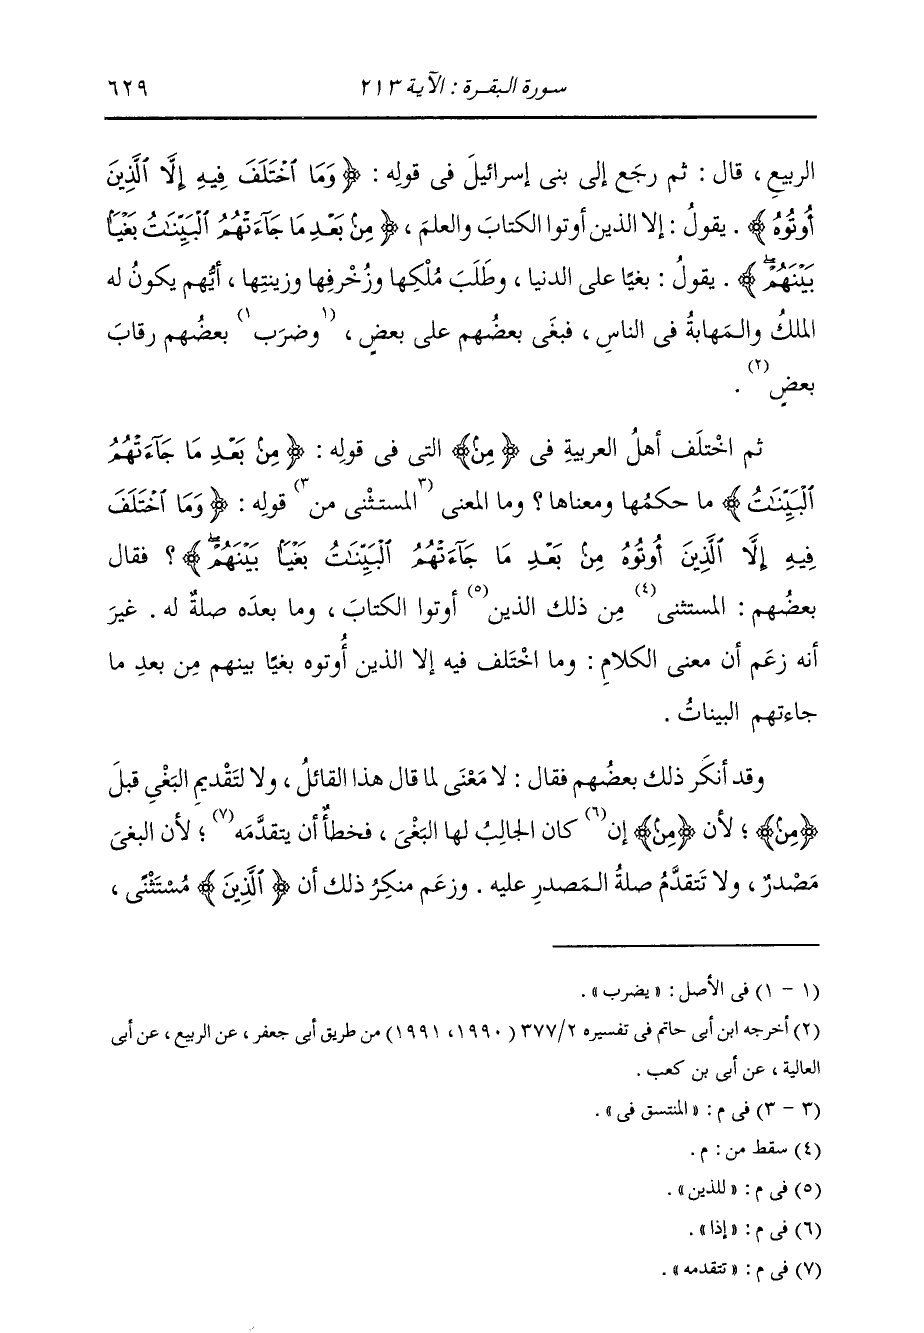 سورة البقرة : الآية ٢١٣ ٦٢٩
الربيعِ ، قال : ثم رجَع إلى بنى إسرائيلَ فى قولِه : ﴿ وَمَا ٱخْتَلَفَ فِيهِ إِلَّا ٱلَّذِينَ
أُوتُوهُ ﴾ . يقولُ : إلا الذين أوتوا الكتابَ والعلمَ ، ﴿ مِنۢ بَعْدِ مَا جَآءَتْهُمُ ٱلْبَيِّنَـٰتُ بَغْيَۢا
بَيْنَهُمْۖ ﴾ . يقولُ : بغيًا على الدنيا ، وطَلَبَ مُلْكِها وزُخْرفِها وزينتِها ، أيُّهم يكونُ له
الملكُ والمَهابةُ فى الناسِ ، فبغَى بعضُهم على بعضٍ ، (١وضرَب١) بعضُهم رقابَ
بعضٍ(٢) .
ثم اخْتلَف أهلُ العربيةِ فى ﴿ مِنۢ﴾ التى فى قولِه : ﴿ مِنۢ بَعْدِ مَا جَآءَتْهُمُ
ٱلْبَيِّنَـٰتُ ﴾ ما حكمُها ومعناها ؟ وما المعنى (٣المستثْنى من٣) قولِه : ﴿ وَمَا ٱخْتَلَفَ
فِيهِ إِلَّا ٱلَّذِينَ أُوتُوهُ مِنۢ بَعْدِ مَا جَآءَتْهُمُ ٱلْبَيِّنَـٰتُ بَغْيَۢا بَيْنَهُمْۖ ﴾ ؟ فقال
بعضُهم : المستثنى(٤) مِن ذلك الذين(٥) أوتوا الكتابَ ، وما بعدَه صلةٌ له . غيرَ
أنه زعَم أن معنى الكلامِ : وما اخْتلف فيه إلا الذين أُوتوه بغيًا بينهم مِن بعدِ ما
جاءتهم البيناتُ .
وقد أنكَر ذلك بعضُهم فقال : لا مَعْنَى لما قال هذا القائلُ ، ولا لتَقْديمِ البَغْىِ قبلَ
﴿مِنۢ﴾ ؛ لأن ﴿مِنۢ﴾ إن(٦) كان الجالبُ لها البَغْىَ ، فخطأٌ أن يتقدَّمَه(٧) ؛ لأن البغىَ
مَصْدرٌ ، ولا تَتقدَّمُ صلةُ المَصدرِ عليه . وزعَم منكِرُ ذلك أن ﴿ ٱلَّذِينَ ﴾ مُسْتَثْنًى ،
(١ - ١) فى الأصل : « يضرب » .
(٢) أخرجه ابن أبى حاتم فى تفسيره ٣٧٧/٢ (١٩٩٠، ١٩٩١) من طريق أبى جعفر ، عن الربيع ، عن أبى
العالية ، عن أبى بن كعب .
(٣ - ٣) فى م : « المنتسق فى » .
(٤) سقط من : م .
(٥) فى م : « للذين » .
(٦) فى م : « إذا » .
(٧) فى م : « تتقدمه » .